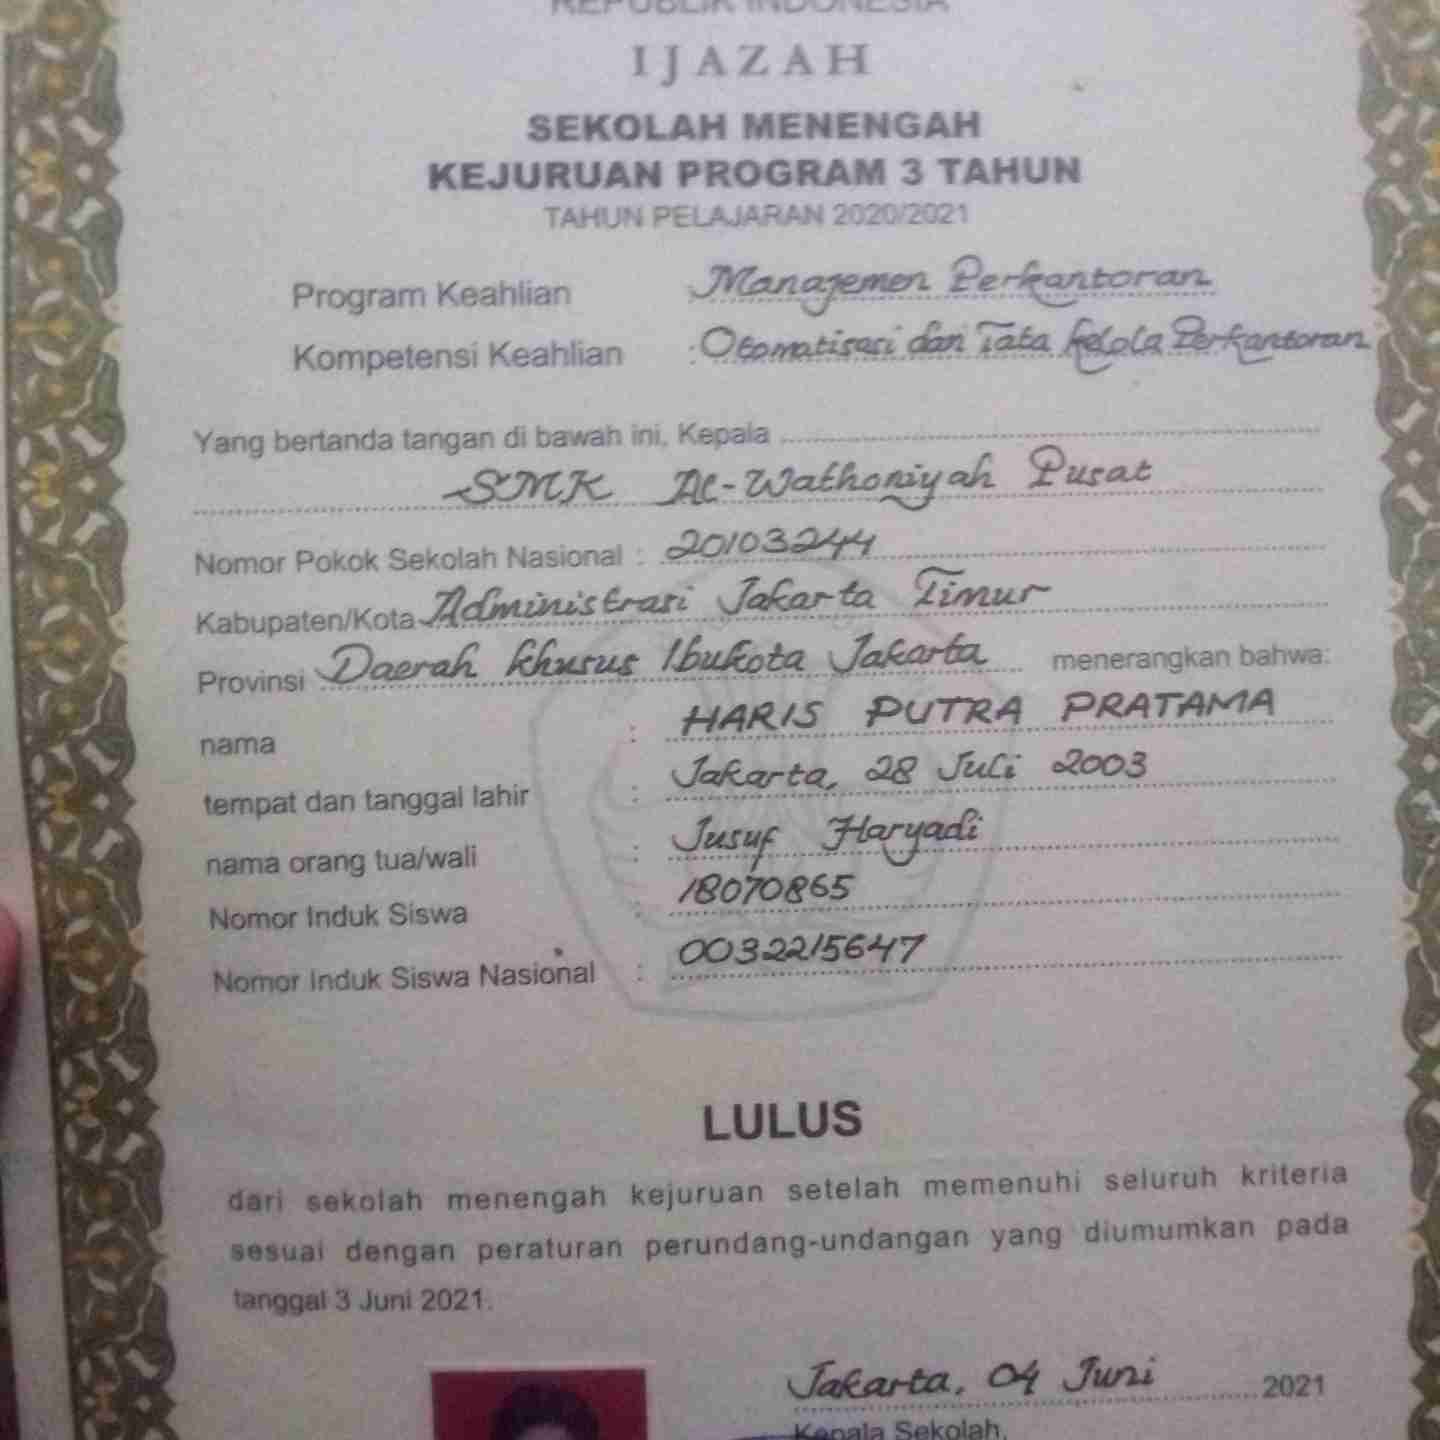 REPUBLIK INDONESIA
IJAZAH
SEKOLAH MENENGAH
KEJURUAN PROGRAM 3 TAHUN
TAHUN PELAJARAN 2020/2021
Program Keahlian : Manajemen Perkantoran
Kompetensi Keahlian : Otomatisasi dan Tata Kelola Perkantoran
Yang bertanda tangan di bawah ini, Kepala
SMK Al-Wathoniyah Pusat
Nomor Pokok Sekolah Nasional : 20103244
Kabupaten/Kota Administrasi Jakarta Timur
Provinsi Daerah Khusus Ibukota Jakarta menerangkan bahwa:
nama : HARIS PUTRA PRATAMA
tempat dan tanggal lahir : Jakarta, 28 Juli 2003
nama orang tua/wali : Jusuf Haryadi
Nomor Induk Siswa : 18070865
Nomor Induk Siswa Nasional : 0032215647
LULUS
dari sekolah menengah kejuruan setelah memenuhi seluruh kriteria
sesuai dengan peraturan perundang-undangan yang diumumkan pada
tanggal 3 Juni 2021.
Jakarta, 04 Juni 2021
Kepala Sekolah,